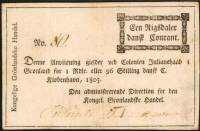 Kongelige Grönlandske Handel.
No.
Een Rigsdaler
dansk Courant.
Denne Anviisning gielder ved Colonien Julianehaab i
Grønland for 1 Rdlr. eller 96 Skilling dansk C.
Kiøbenhavn, 1803.
Den administrerende Direction for
den Kongel. Grønlandske Handel.